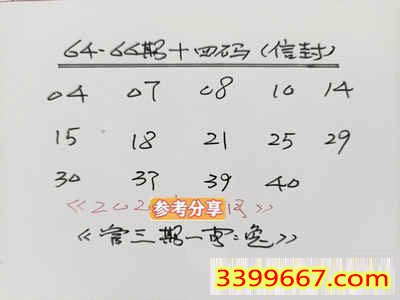 64-66期十四码(信封)
04 07 08 10 14
15 18 21 25 29
30 37 39 40
《202 参考分享 》
《管三期一肖:兔》
3399667.com